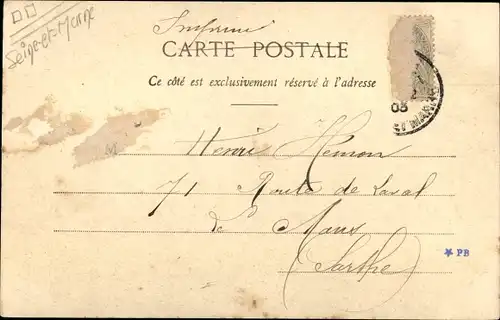 Seine-et-Marne
Imprimé
CARTE POSTALE
Ce côté est exclusivement réservé à l'adresse
03
Henri Hémon
71 Route de Laval
Le Mans
(Sarthe)
PB